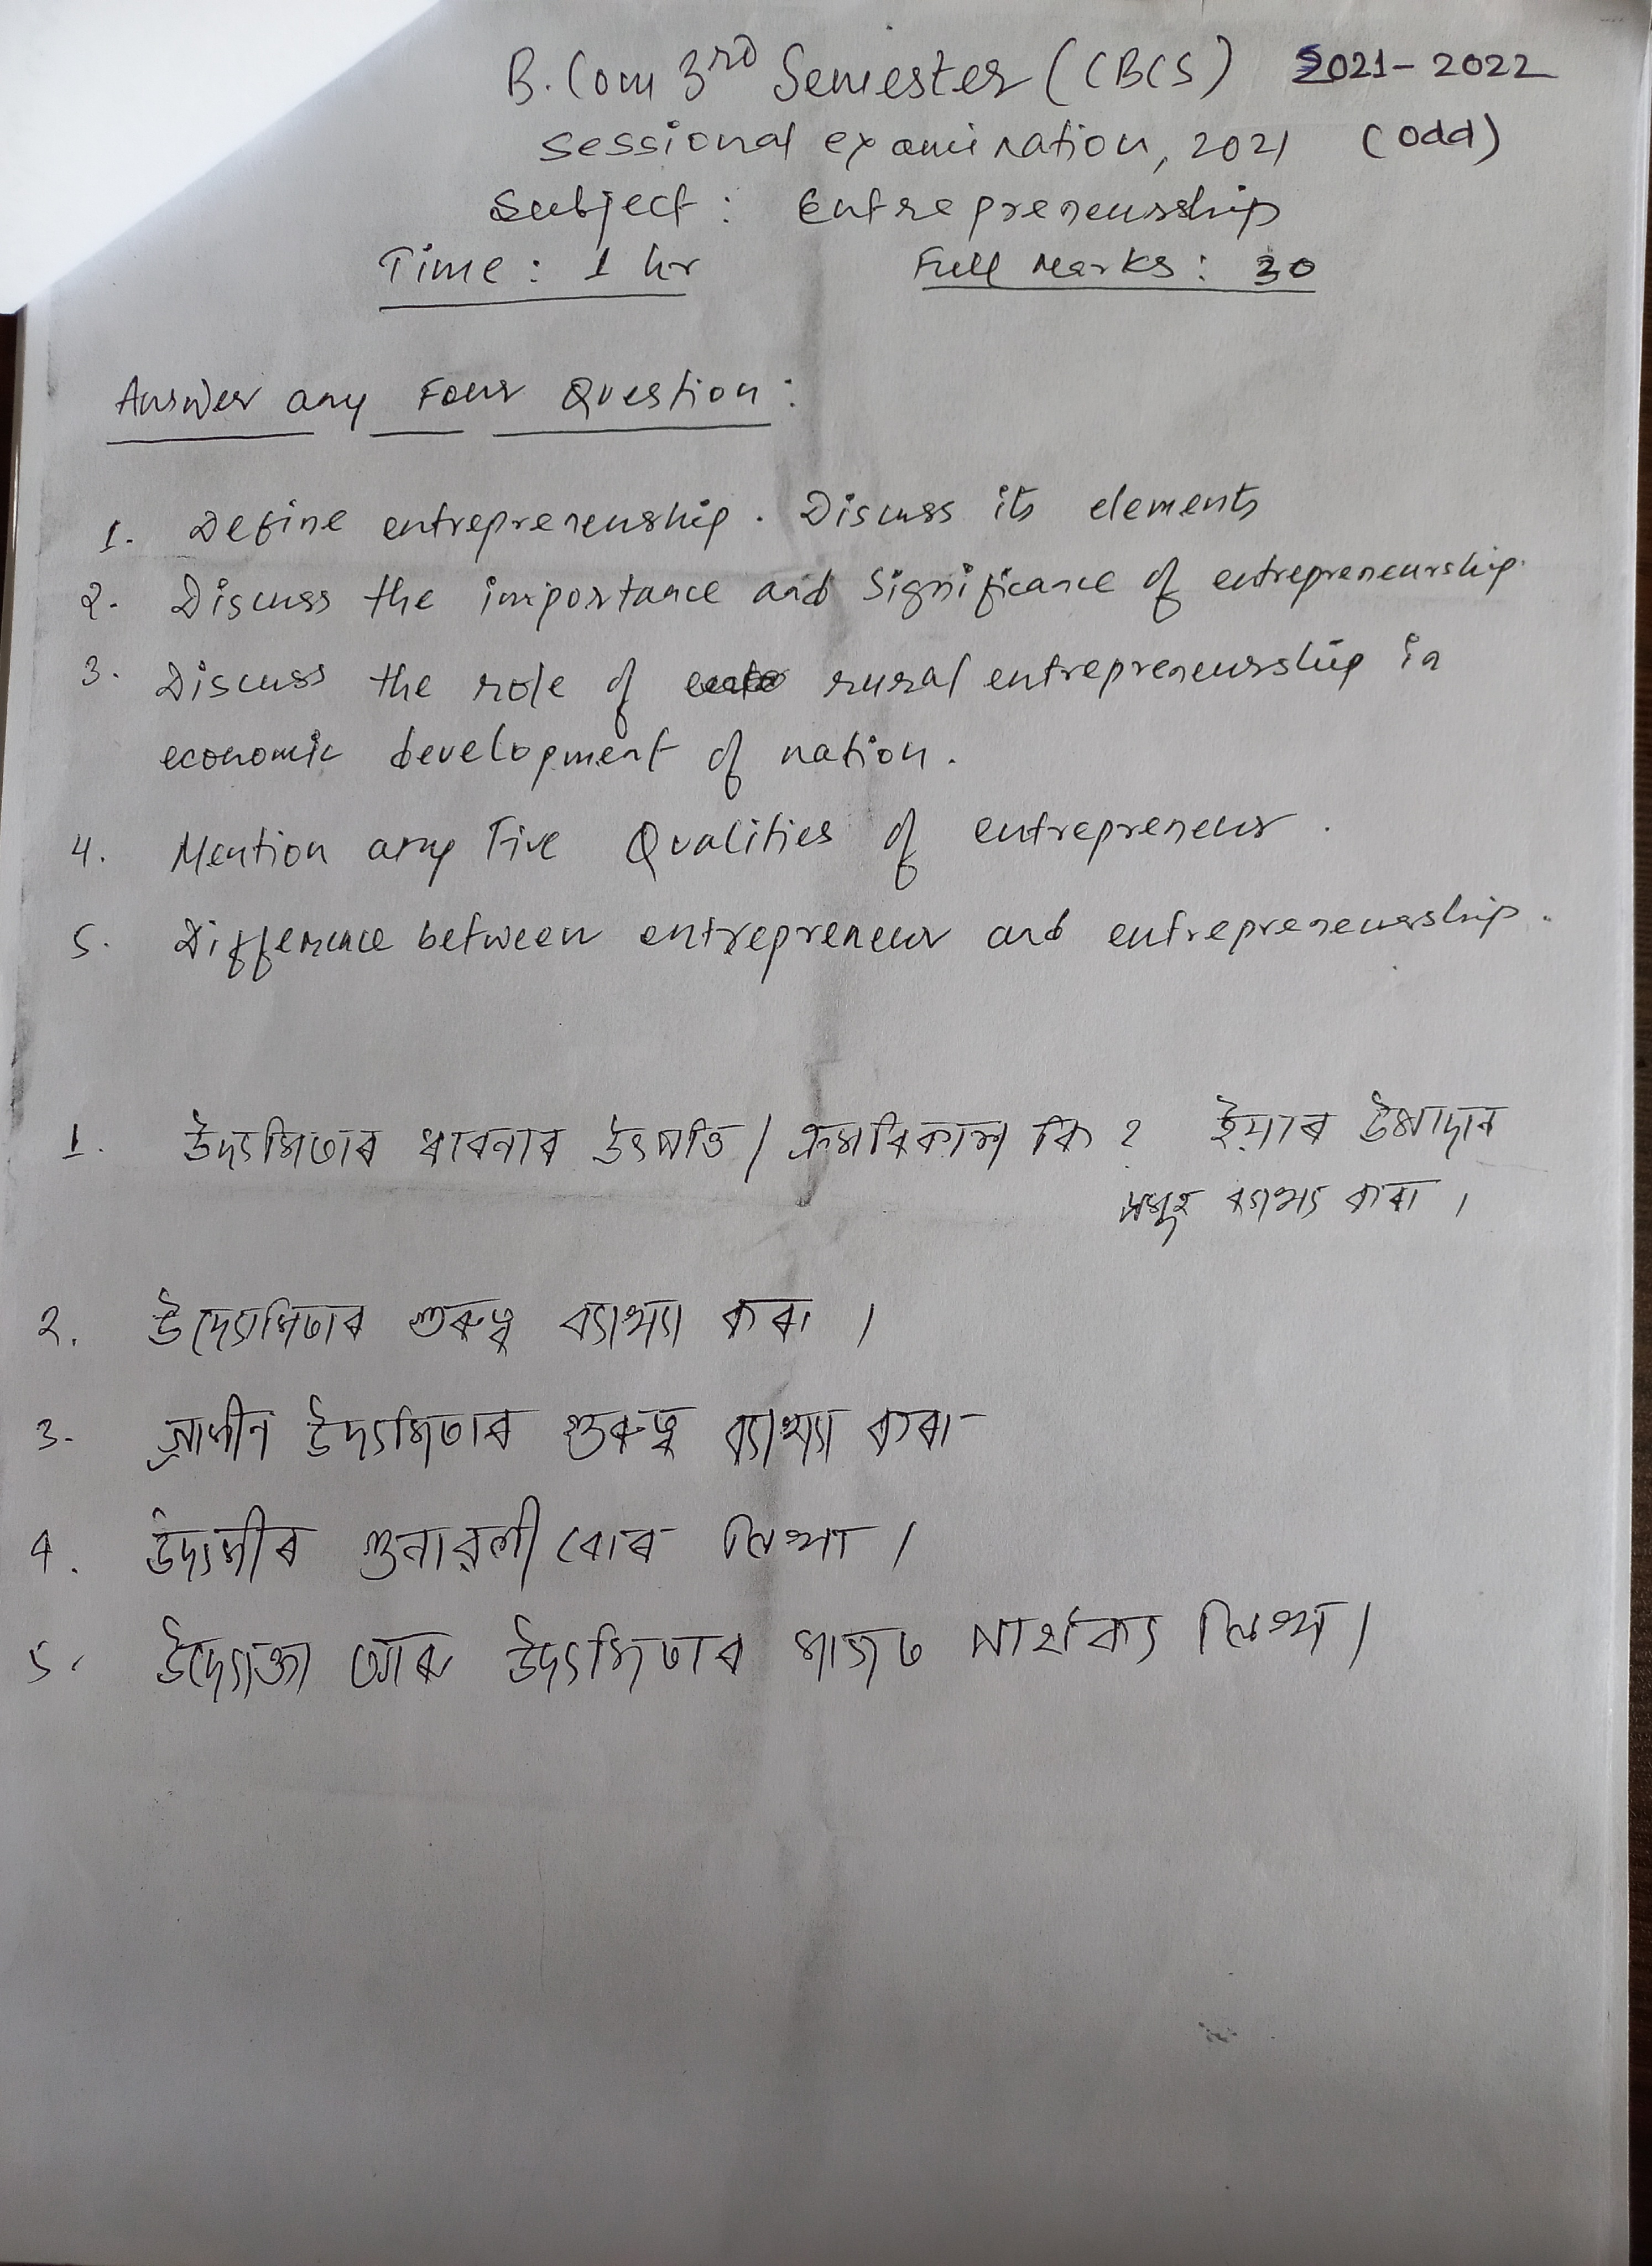 B.Com 3rd Semester (CBCS) 2021-2022
Sessional examination, 2021 (Odd)
Subject: Entrepreneurship
Time: 1 hr Full Marks: 30
Answer any Four Question:
1. Define entrepreneurship. Discuss its elements
2. Discuss the importance and Significance of entrepreneurship.
3. Discuss the role of rural entrepreneurship in
economic development of nation.
4. Mention any Five Qualities of entrepreneur.
5. Difference between entrepreneur and entrepreneurship.
1. উদ্যমিতাৰ ধাৰনাৰ উৎপত্তি / ক্ৰমবিকাশ কি? ইয়াৰ উপাদান
সমূহ ব্যাখ্যা কৰা।
2. উদ্যোমিতাৰ গুৰুত্ব ব্যাখ্যা কৰা।
3. গ্ৰামীন উদ্যমিতাৰ গুৰুত্ব ব্যাখ্যা কৰা
4. উদ্যমীৰ গুনাৱলী বোৰ লিখা।
5. উদ্যোক্তা আৰু উদ্যমিতাৰ মাজত পাৰ্থক্য লিখা।